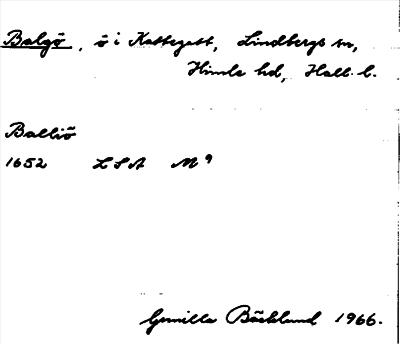 Balgö, ö i Kattegatt, Lindbergs sn,
Himle hd, Hall. l.
Balliö
1652 LSA M 9
Gunilla Bäcklund 1966.